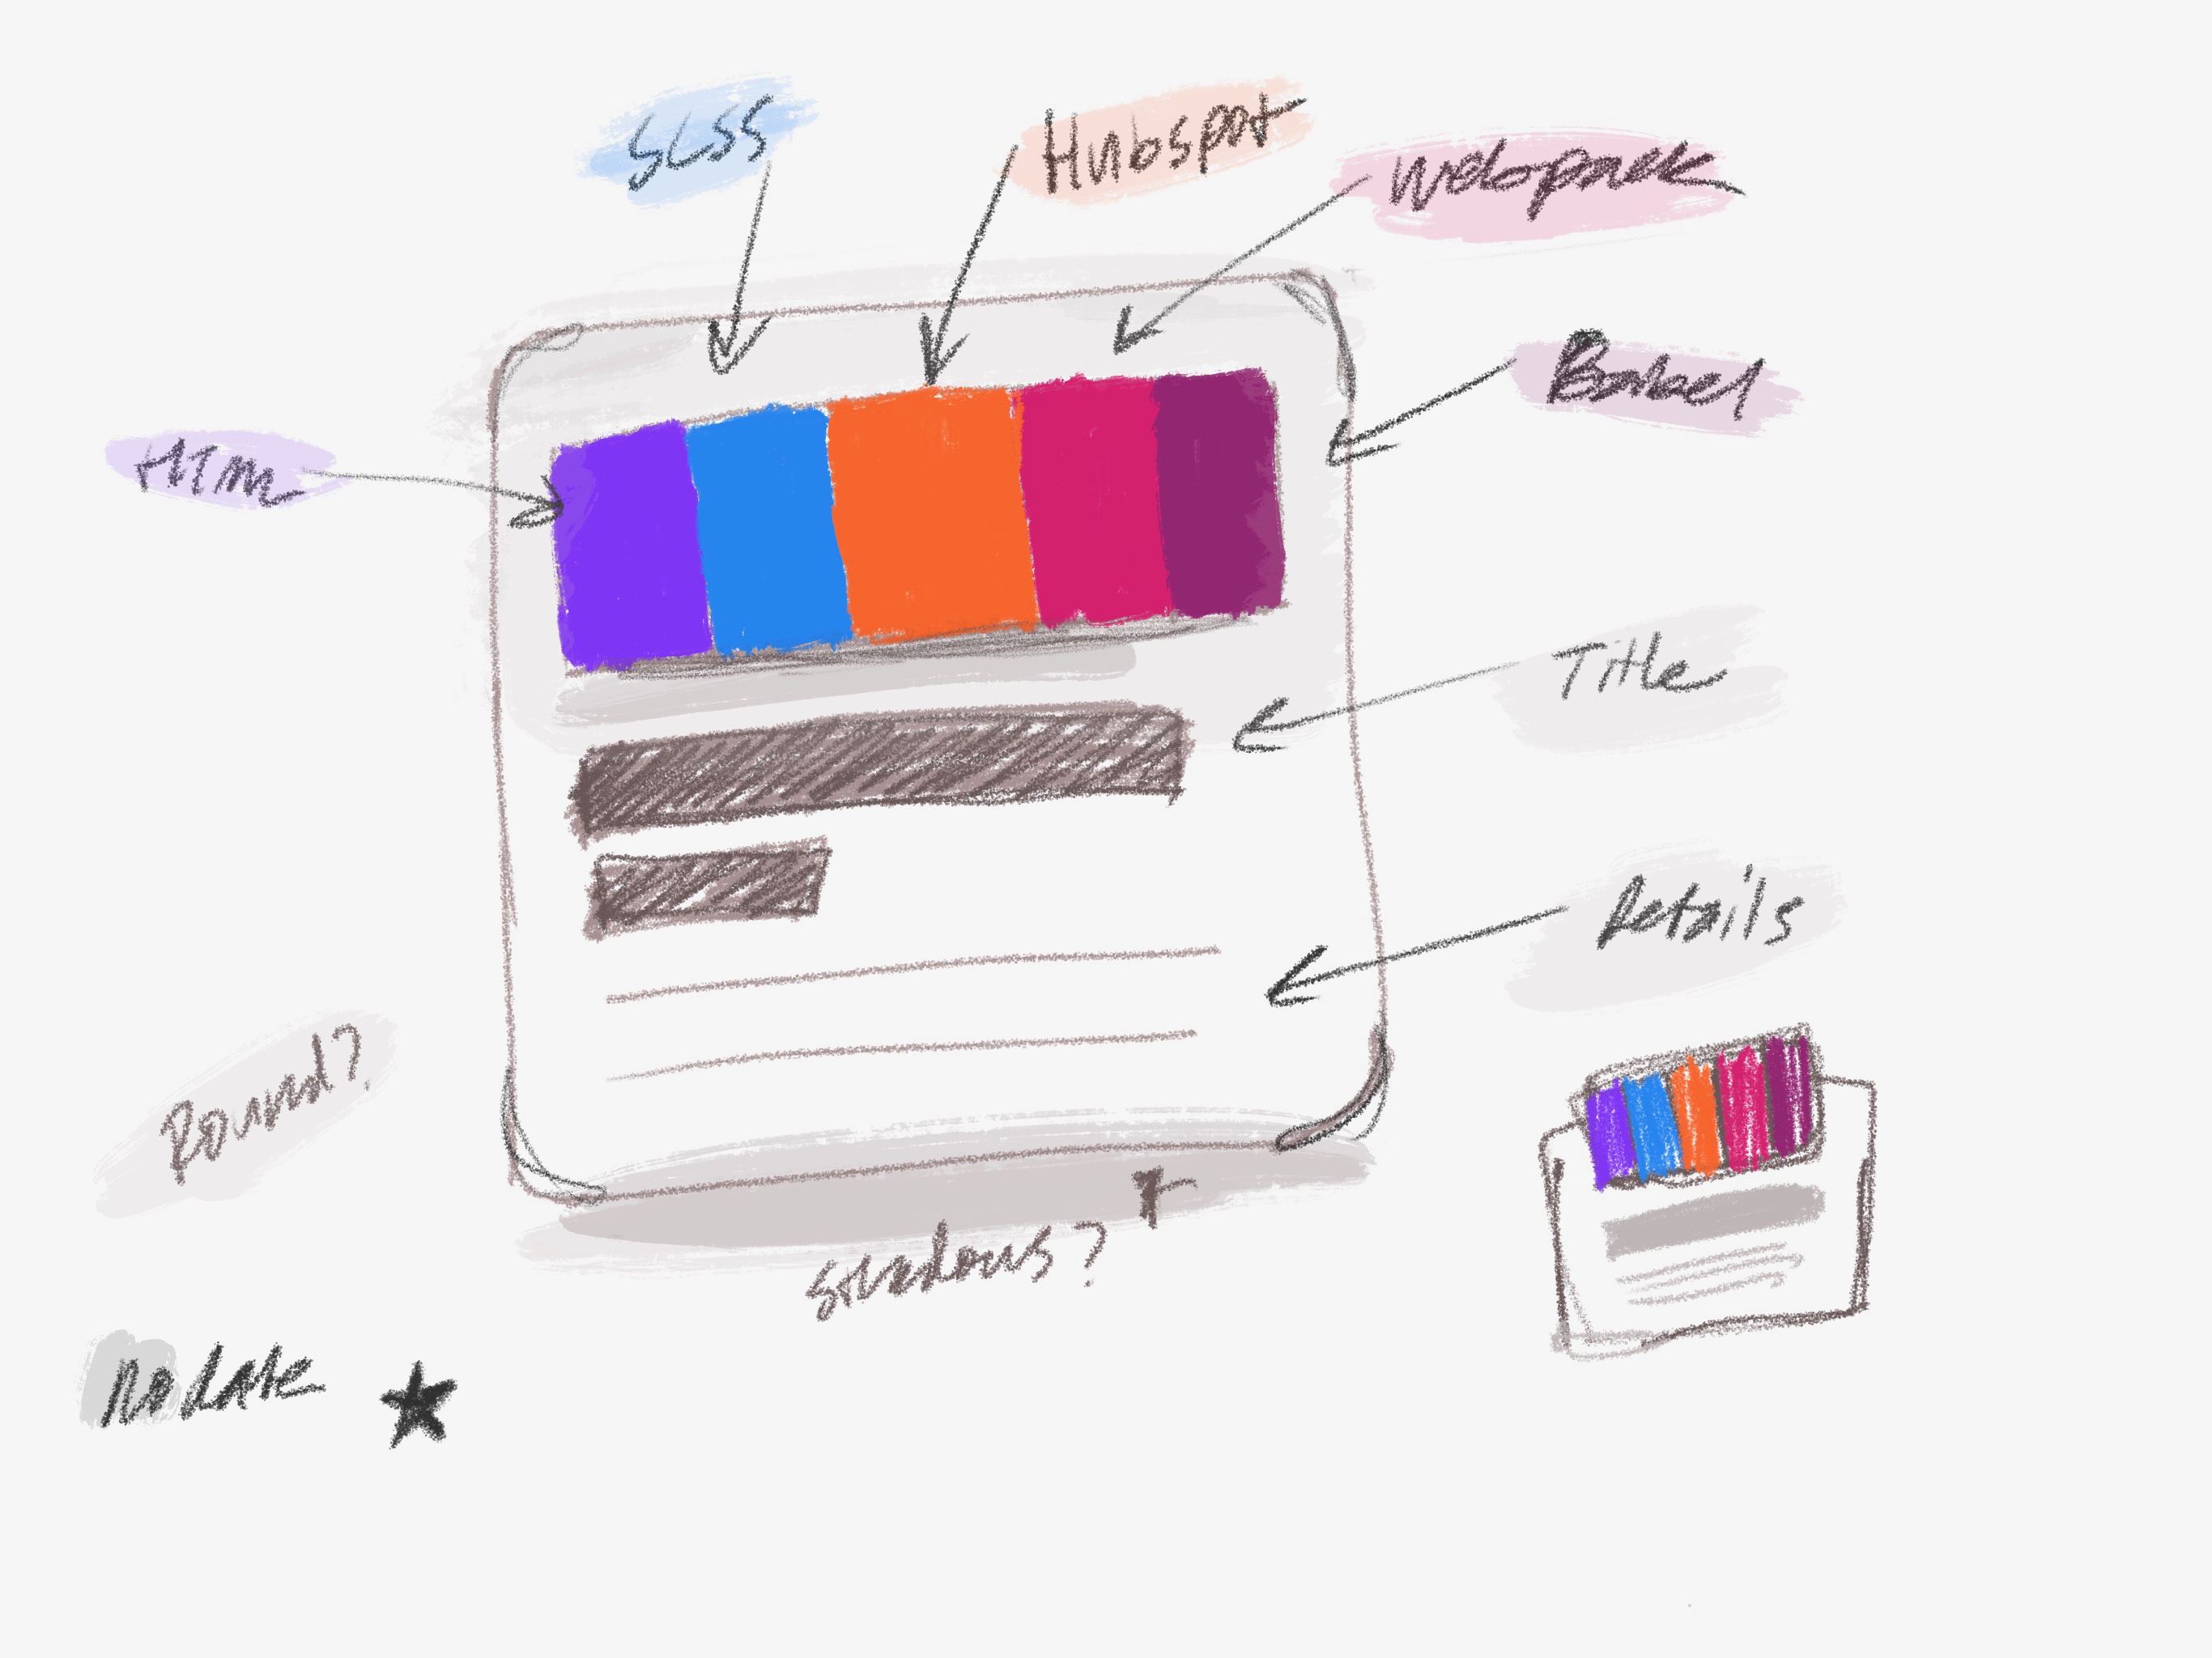 SCSS
Hubspot
Webpack
Babel
HTML
Title
Details
Round?
Shadows?
No date